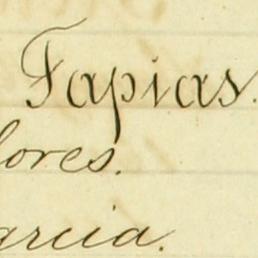 Tapias.
lores.
arcia.